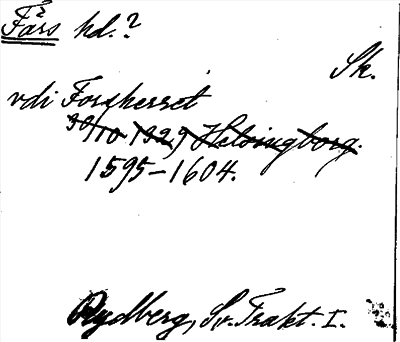 Färs hd.?
Sk.
vdi Forssherret
30/10 1329 Helsingborg.
1595-1604.
Rydberg, Sv. Trakt. I.